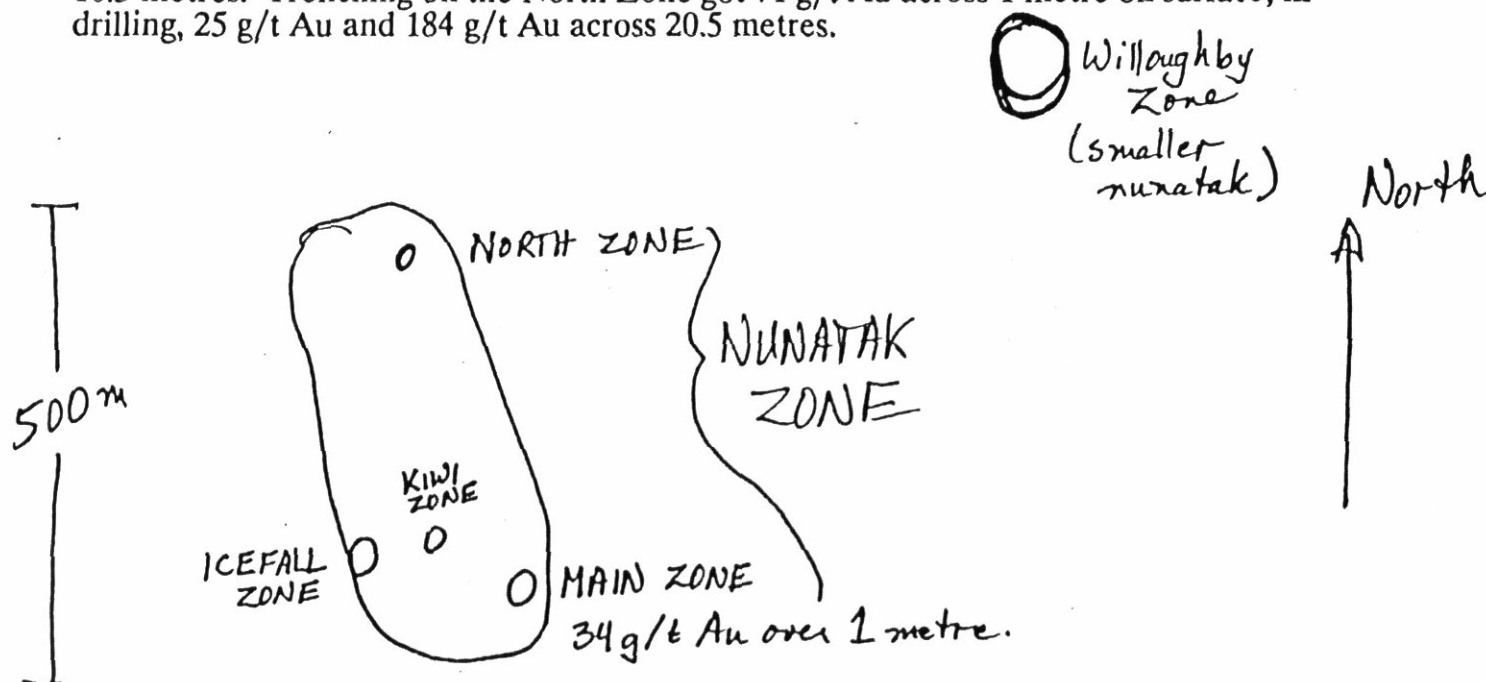 drilling, 25 g/t Au and 184 g/t Au across 20.5 metres.
Willoughby
Zone
(smaller
nunatak)
North
NORTH ZONE
NUNATAK
ZONE
500 m
KIWI
ZONE
ICEFALL
ZONE
MAIN ZONE
34 g/t Au over 1 metre.